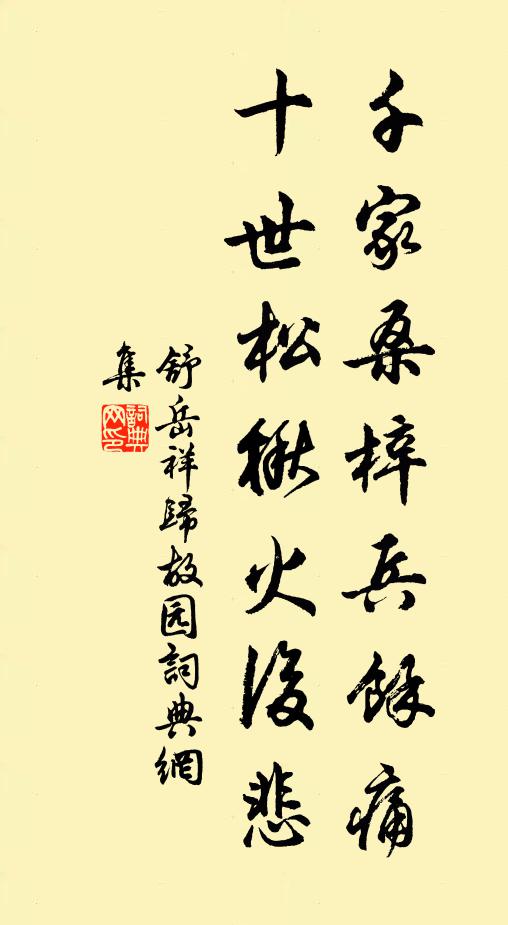 千家桑梓兵餘痛
十世松楸火後悲
舒岳祥歸故园詞典網
集
詞典网印